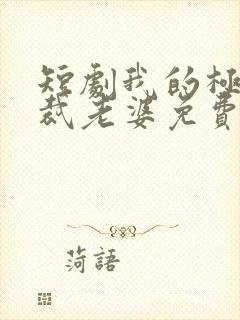 短劇我的極
裁老婆免費
菏語